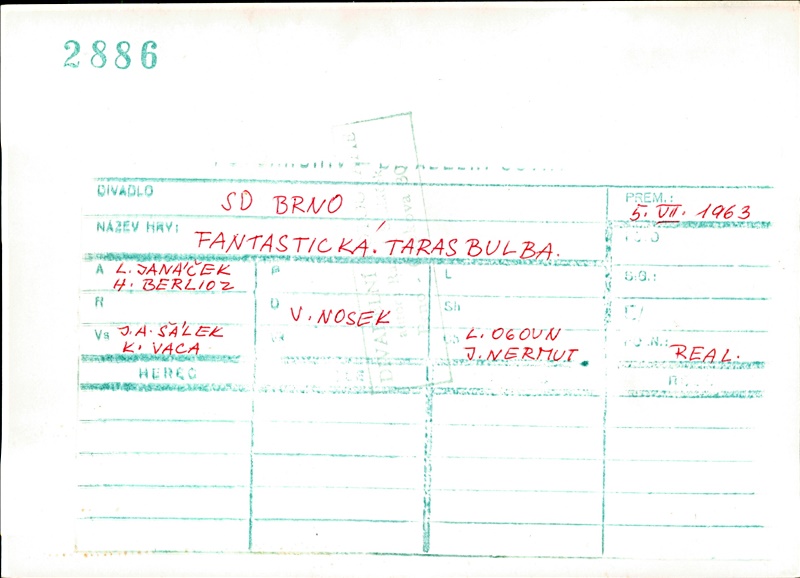 2886
DIVADLO SD BRNO PREM.: 5. VII. 1963
NÁZEV HRY: FANTASTICKÁ. TARAS BULBA.
A L. JANÁČEK
H. BERLIOZ
L
R
D V. NOSEK
Sh
Vs J. A. ŠÁLEK
K. VACA
L. OGOUN
J. NERMUT
REAL.
HEREC